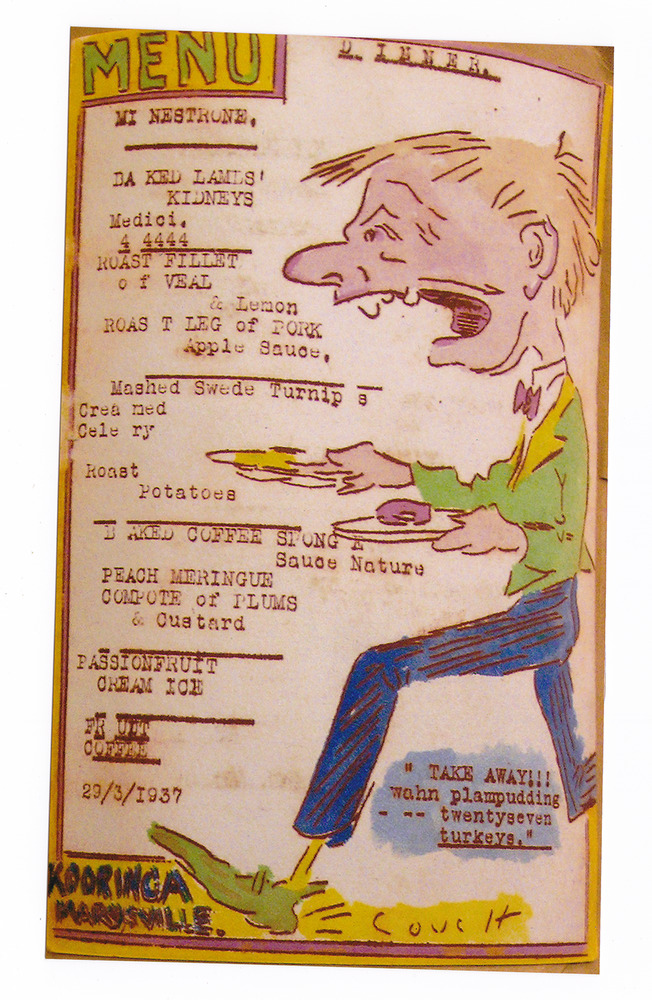 MENU
DINNER.
MI NESTRONE.
BA KED LAMBS'
KIDNEYS
Medici.
4 4444
ROAST FILLET
o f VEAL
& Lemon
ROAS T LEG of PORK
Apple Sauce.
Mashed Swede Turnip s
Crea med
Cele ry
Roast
Potatoes
B AKED COFFEE SPONG E
Sauce Nature
PEACH MERINGUE
COMPOTE of PLUMS
& Custard
PASSIONFRUIT
CREAM ICE
FR UIT
COFFEE
29/3/1937
" TAKE AWAY!!!
wahn plampudding
- -- twentyseven
turkeys."
KOORINGA
MARYSVILLE.
COUCH